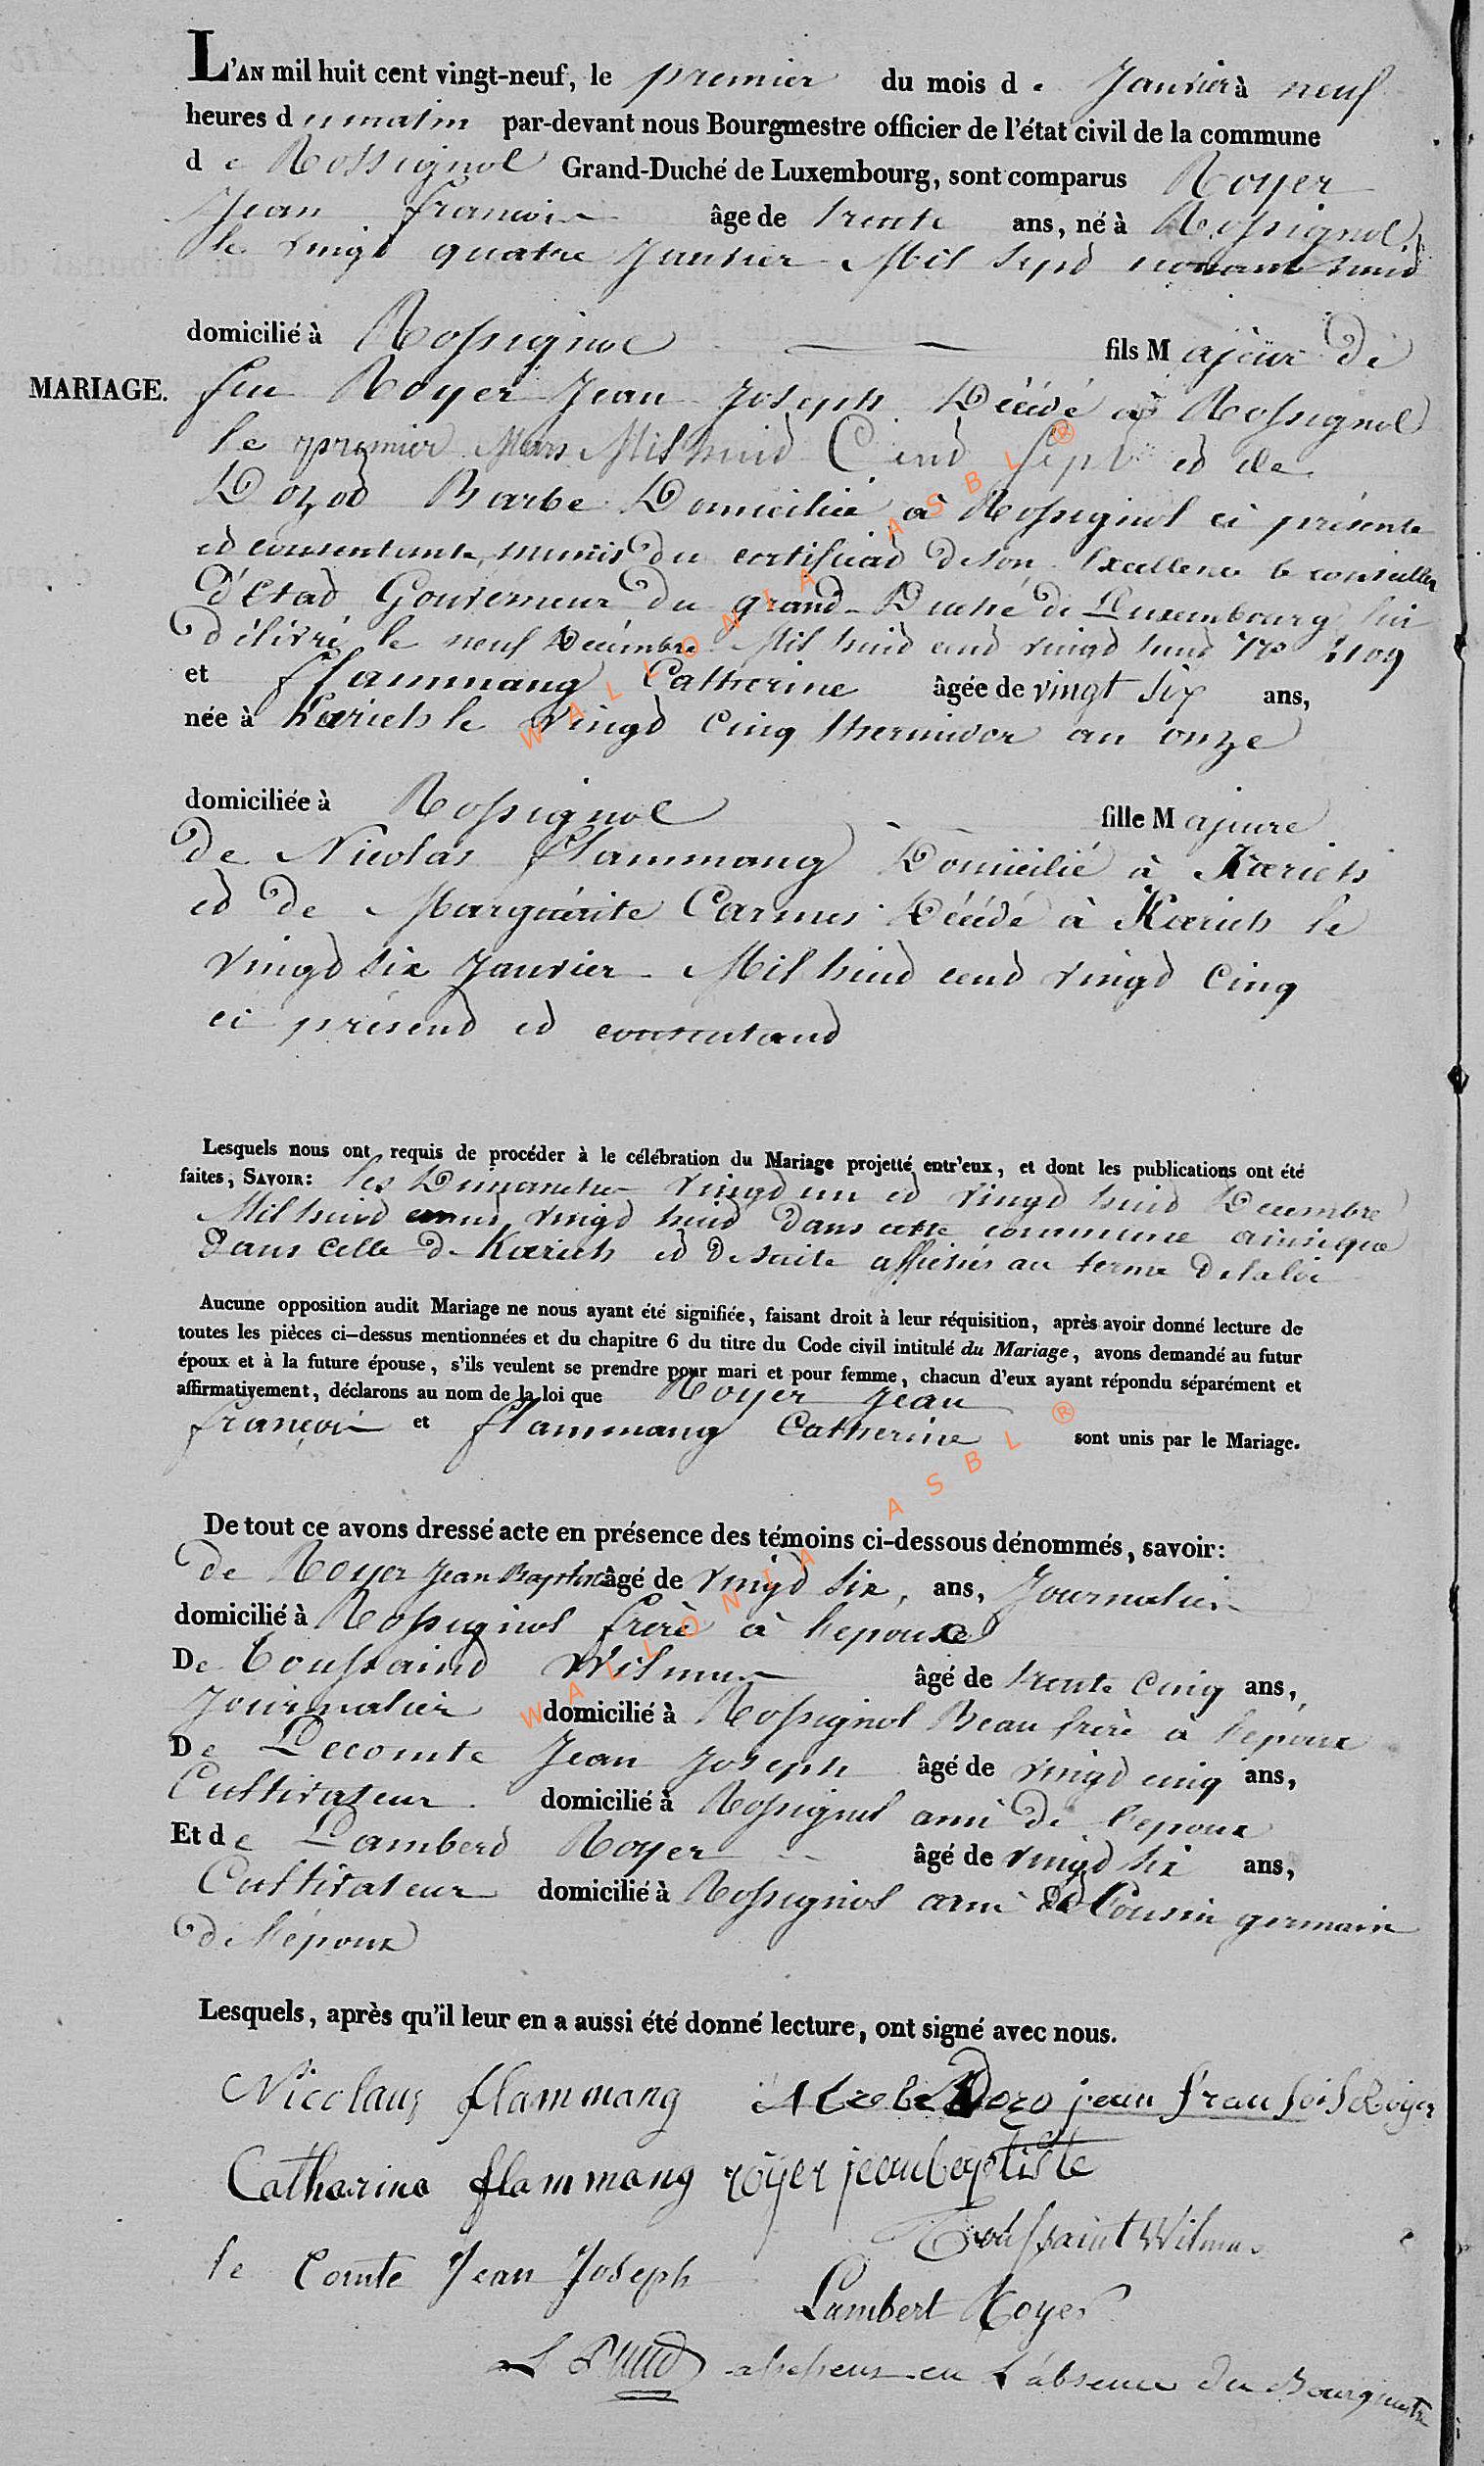 L'AN mil huit cent vingt-neuf, le premier du mois de Janvier à neuf
heures du matin par-devant nous Bourgmestre officier de l'état civil de la commune
de Rossignol Grand-Duché de Luxembourg, sont comparus Royer
Jean françois âge de trente ans, né à Rossignol
le vingt quatre Janvier Mil sept nonante huit
domicilié à Rossignol fils Majeur de
MARIAGE.
feu Royer Jean Joseph Décédé à Rossignol
le premier Mars Mil huit Cent sept et de
Dozot Barbe Domiciliée à Rossignol ci présente
et consentante, munis du certificat de son Excellence le conseiller
d'État Gouverneur du grand-Duché de Luxembourg lui
délivré le neuf Décembre Mil huit cent vingt huit No 2109
et flammang Catherine âgée de vingt six ans,
née à Kœrich le vingt cinq thermidor an onze
domiciliée à Rossignol fille Majeure
de Nicolas flammang Domicilié à Kœrich
et de Marguérite Carmes Décédé à Kœrich le
vingt six Janvier Mil huit cent vingt cinq
ci présent et consentant
Lesquels nous ont requis de procéder à le célébration du Mariage projetté entr'eux, et dont les publications ont été
faites, SAVOIR: les Dimanches vingt un et vingt huit Décembre
Mil huit cent vingt huit dans cette commune ainsi que
dans celle de Kœrich et de suite affichés au terme de la loi
Aucune opposition audit Mariage ne nous ayant été signifiée, faisant droit à leur réquisition, après avoir donné lecture de
toutes les pièces ci-dessus mentionnées et du chapitre 6 du titre du Code civil intitulé du Mariage, avons demandé au futur
époux et à la future épouse, s'ils veulent se prendre pour mari et pour femme, chacun d'eux ayant répondu séparément et
affirmativement, déclarons au nom de la loi que Royer Jean
françois et flammang Catherine sont unis par le Mariage.
De tout ce avons dressé acte en présence des témoins ci-dessous dénommés, savoir:
de Royer Jean Baptiste âgé de vingt six, ans, Journalier
domicilié à Rossignol frère à l'epoux
De Toussaint Wilmus âgé de trente cinq ans,
Journalier domicilié à Rossignol Beau frère à l'epoux
De Lecomte Jean Joseph âgé de vingt cinq ans,
Cultivateur domicilié à Rossignol ami de l'epoux
Et de Lambert Royer âgé de vingt six ans,
Cultivateur domicilié à Rossignol ami et Cousin germain
de l'époux
Lesquels, après qu'il leur en a aussi été donné lecture, ont signé avec nous.
Nicolaus flammang Dozo jean fransois Royer
Catharina flammang royer jean baptiste
Toussaint Wilmus
le Comte Jean Joseph
Lambert Royer
assesseur en l'absence du Bourgmestre
WALLONIA ASBL ®
WALLONIA ASBL ®